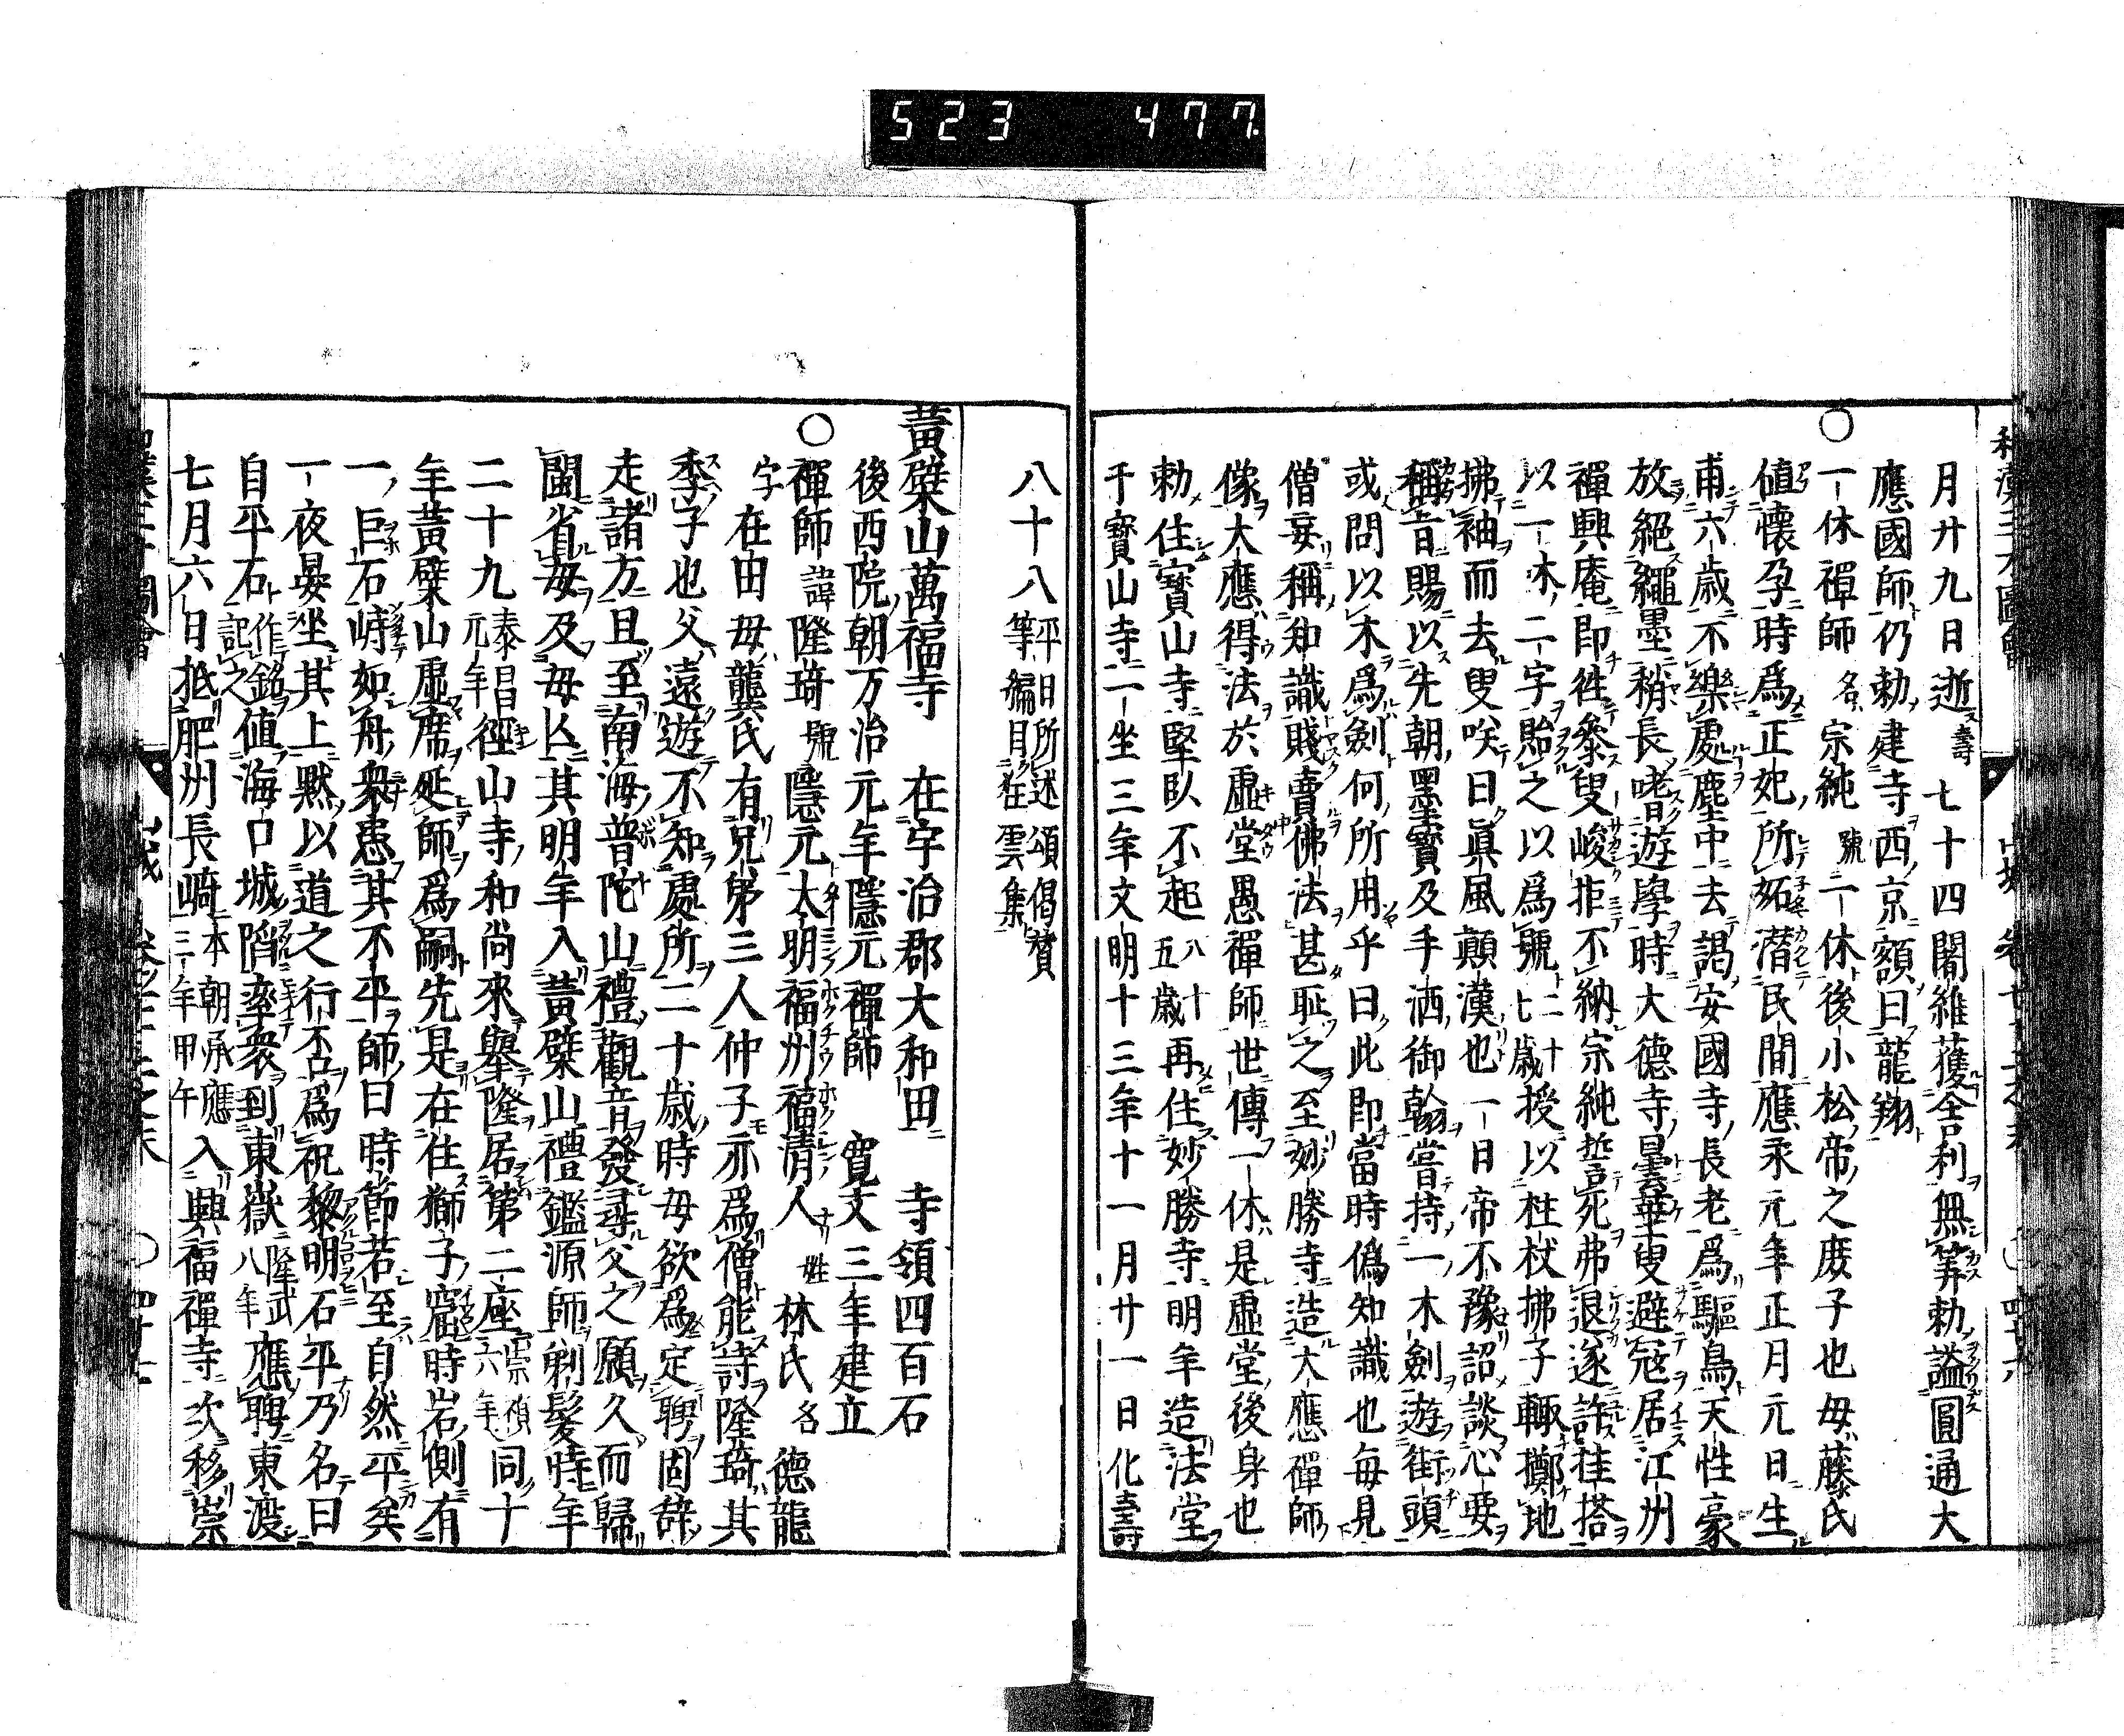 523 477
月廿九日逝壽七十四闍維獲舍利無筭勅謚圓通大
應國師仍勅建寺西京額曰龍翔
○一休禪師名宗純號一休後小松帝之庶子也母藤氏
値懷孕時爲正妃所妬潜民間應永元年正月元日生
甫六歳不樂處塵中去謁安國寺長老爲驅烏天性豪
放絕繩墨稍長嗜遊學時大德寺曇華叟避寇居江州
禪興庵即徃叅叟峻拒不納宗純誓死弗退遂許挂搭
以一休二字貽之以爲號二十七歳授以柱杖拂子輙擲地
拂袖而去叟咲曰眞風顛漢也一日帝不豫詔談心要
稱旨賜以先朝墨寳及手洒御翰嘗持一木劍遊街頭
或問以木爲劍何所用乎曰此即當時僞知識也毎見
僧妄稱知識賤賣佛法甚耻之至妙勝寺造大應禪師
像大應得法於虛堂愚禪師世傳一休是虛堂後身也
勅住寳山寺堅臥不起八十五歳再住妙勝寺明年造法堂
于寳山寺一坐三年文明十三年十一月廿一日化壽
八十八平日所述頌偈賛等編目狂雲集
黃檗山萬福寺 在宇治郡大和田 寺領四百石
後西院朝万治元年隱元禪師 寬文三年建立
○禪師諱隆琦號隱元大明福州福清人姓林氏名德龍
字在田母龔氏有兄弟三人仲子亦爲僧能詩隆琦其
季子也父遠遊不知處所二十歳時母欲爲定聘固辞
走諸方且至南海普陀山禮觀音發尋父之願久而歸
閩省母及母亾其明年入黃檗山禮鑑源師剃髮時年
二十九泰昌元年徑山寺和尚來擧隆居第二座崇禎六年同十
年黃檗山虛席延師爲嗣先是在住獅子窟時岩側有
一巨石崎如舟衆患其不平師曰時節若至自然平矣
一夜晏坐其上黙以道之行否爲祝黎明石平乃名曰
自平石作銘記之値海口城陷率衆到東嶽隆武八年應聘東渡
七月六日抵肥州長崎本朝承應三年甲午入興福禪寺次移崇